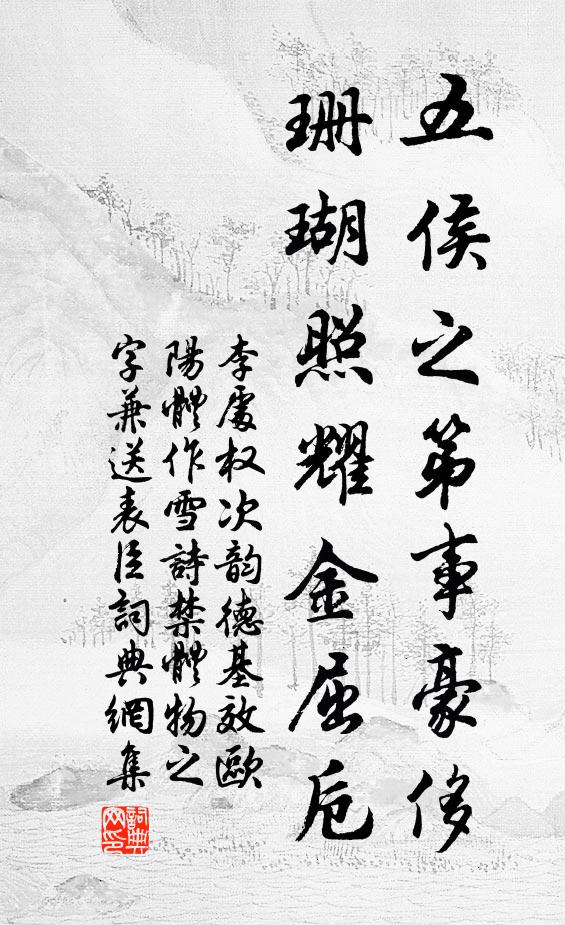 五侯之第事豪侈
珊瑚照耀金屈卮
李處权次韵德基效歐
陽體作雪詩禁體物之
字兼送表臣詞典網集
詞典
网印